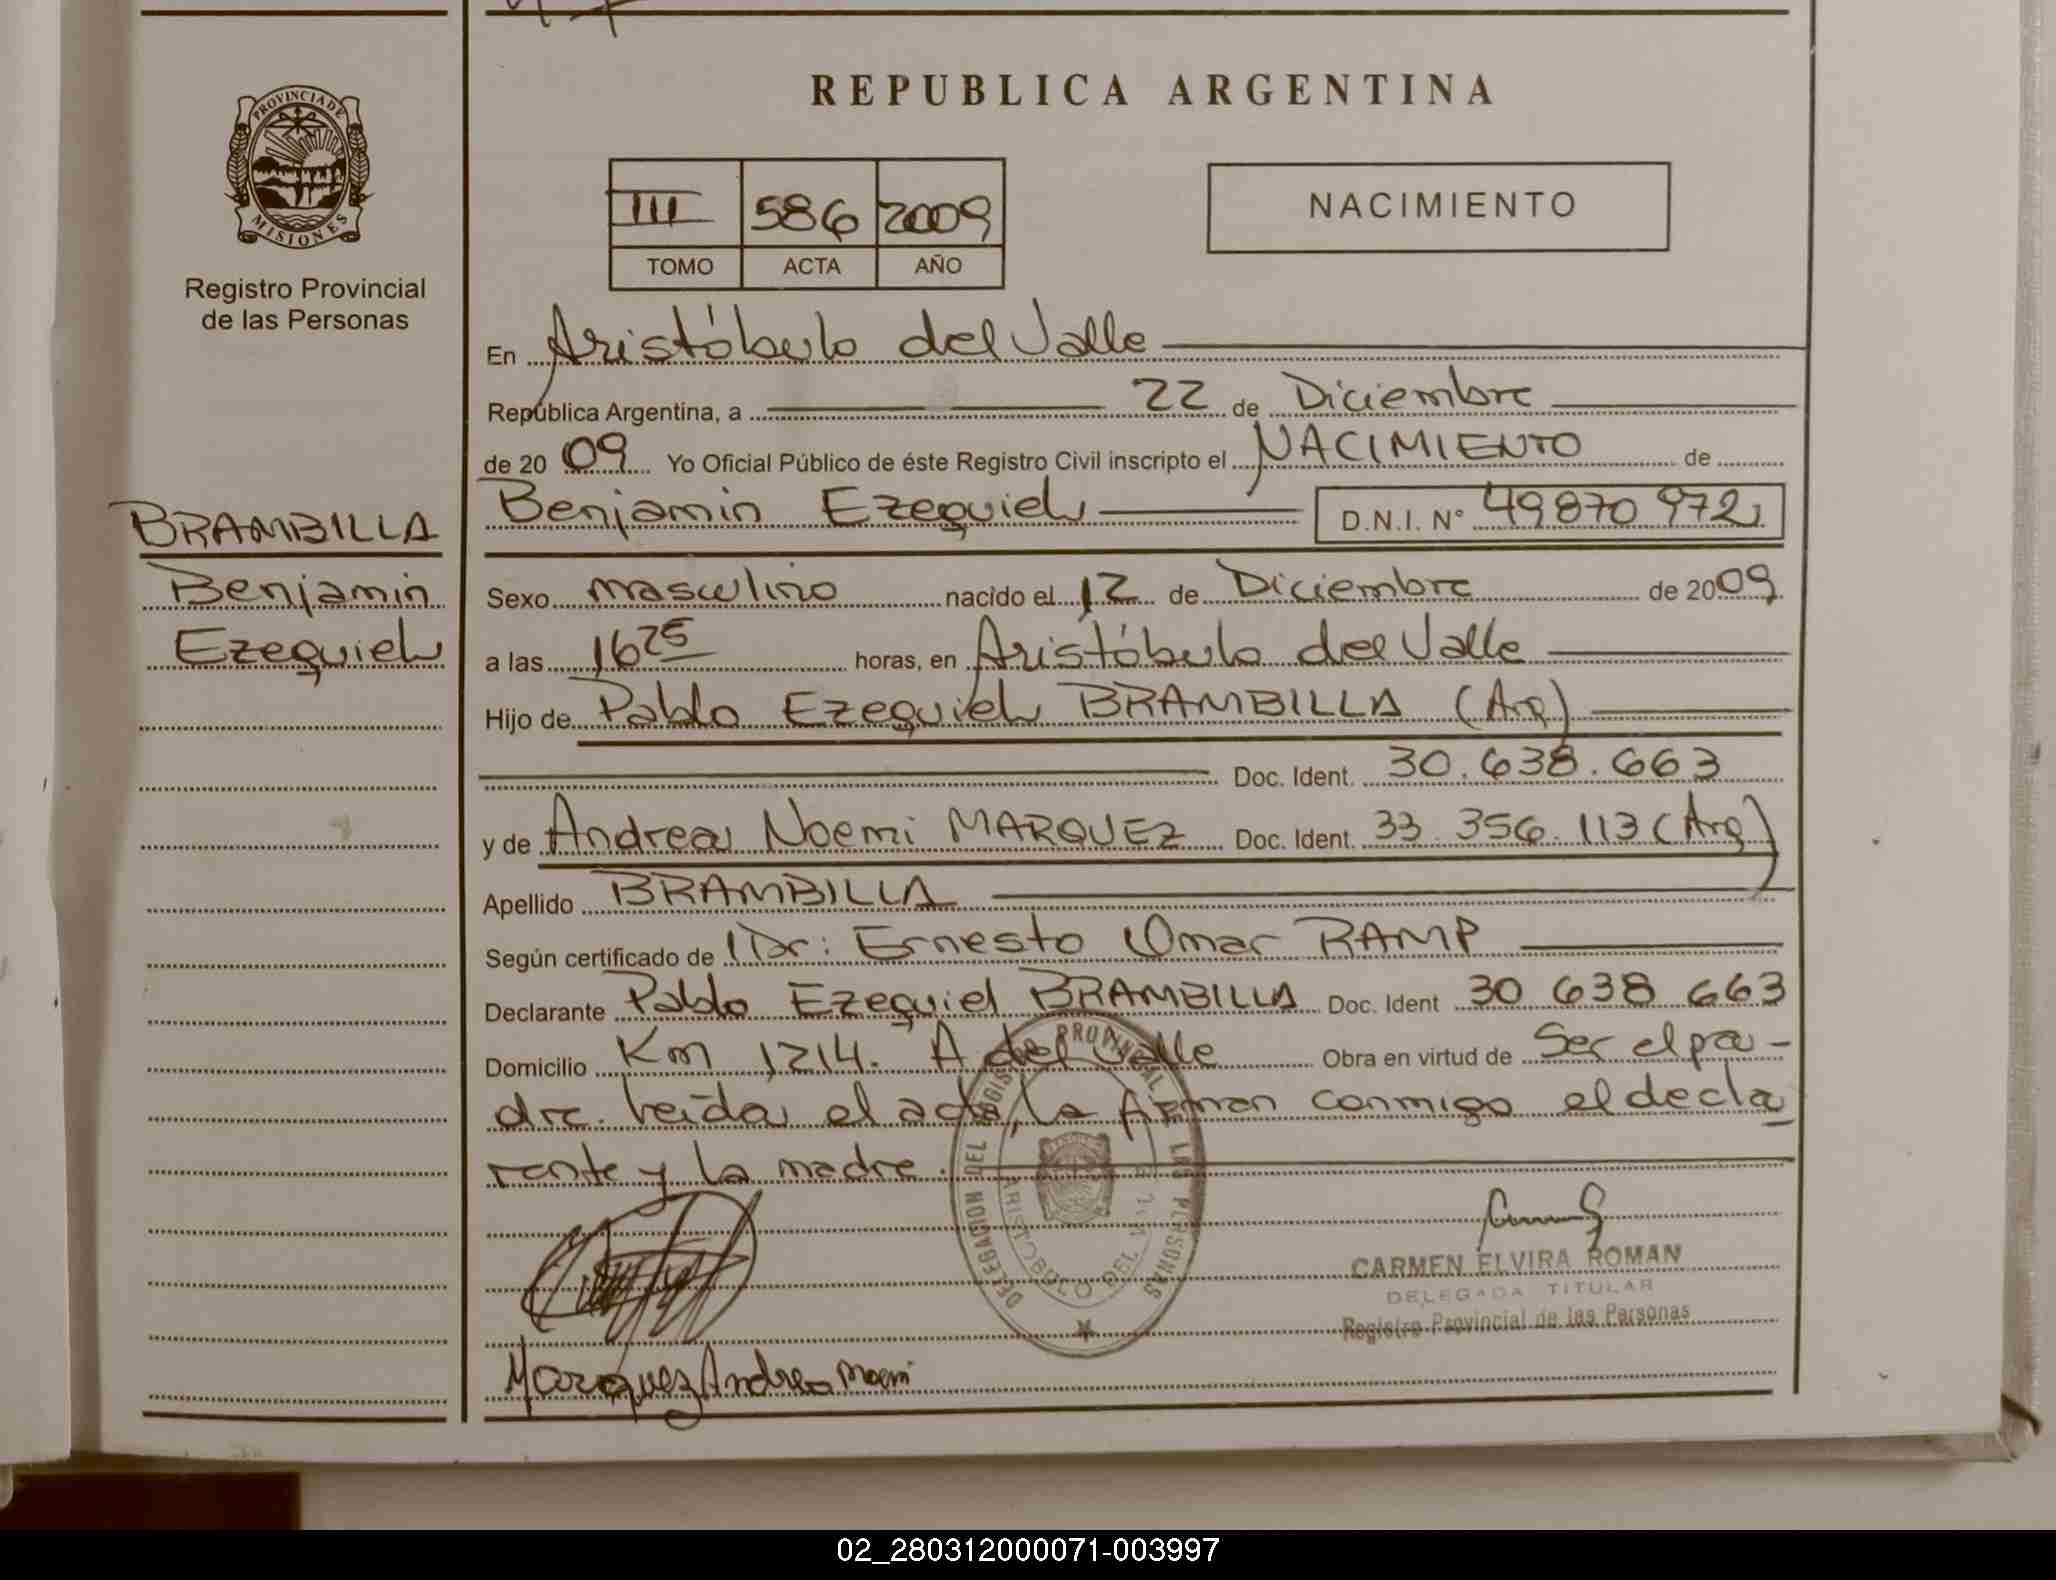 REPUBLICA ARGENTINA
PROVINCIA DE MISIONES
Registro Provincial
de las Personas
III 586 2009
TOMO ACTA AÑO
NACIMIENTO
En Aristóbulo del Valle
República Argentina, a 22 de Diciembre
de 2009 Yo Oficial Público de éste Registro Civil inscripto el NACIMIENTO de
Benjamin Ezequiel D.N.I. Nº 49870972
BRAMBILLA
Benjamin
Ezequiel
Sexo masculino nacido el 12 de Diciembre de 2009
a las 16 25 horas, en Aristóbulo del Valle
Hijo de Pablo Ezequiel BRAMBILLA (Arg)
Doc. Ident. 30.638.663
y de Andrea Noemi MARQUEZ Doc. Ident. 33.356.113 (Arg)
Apellido BRAMBILLA
Según certificado de Dr: Ernesto Omar RAMP
Declarante Pablo Ezequiel BRAMBILLA Doc. Ident 30 638 663
Domicilio Km 1214. A del Valle Obra en virtud de Ser el pa-
dre. Leída el acta, la firman conmigo el decla
rante y la madre.
DELEGACION DEL REGISTRO PROVINCIAL DE LAS PERSONAS
ARISTOBULO DEL VALLE
CARMEN ELVIRA ROMAN
DELEGADA TITULAR
Registro Provincial de las Personas
Marquez Andrea Noemi
02_280312000071-003997